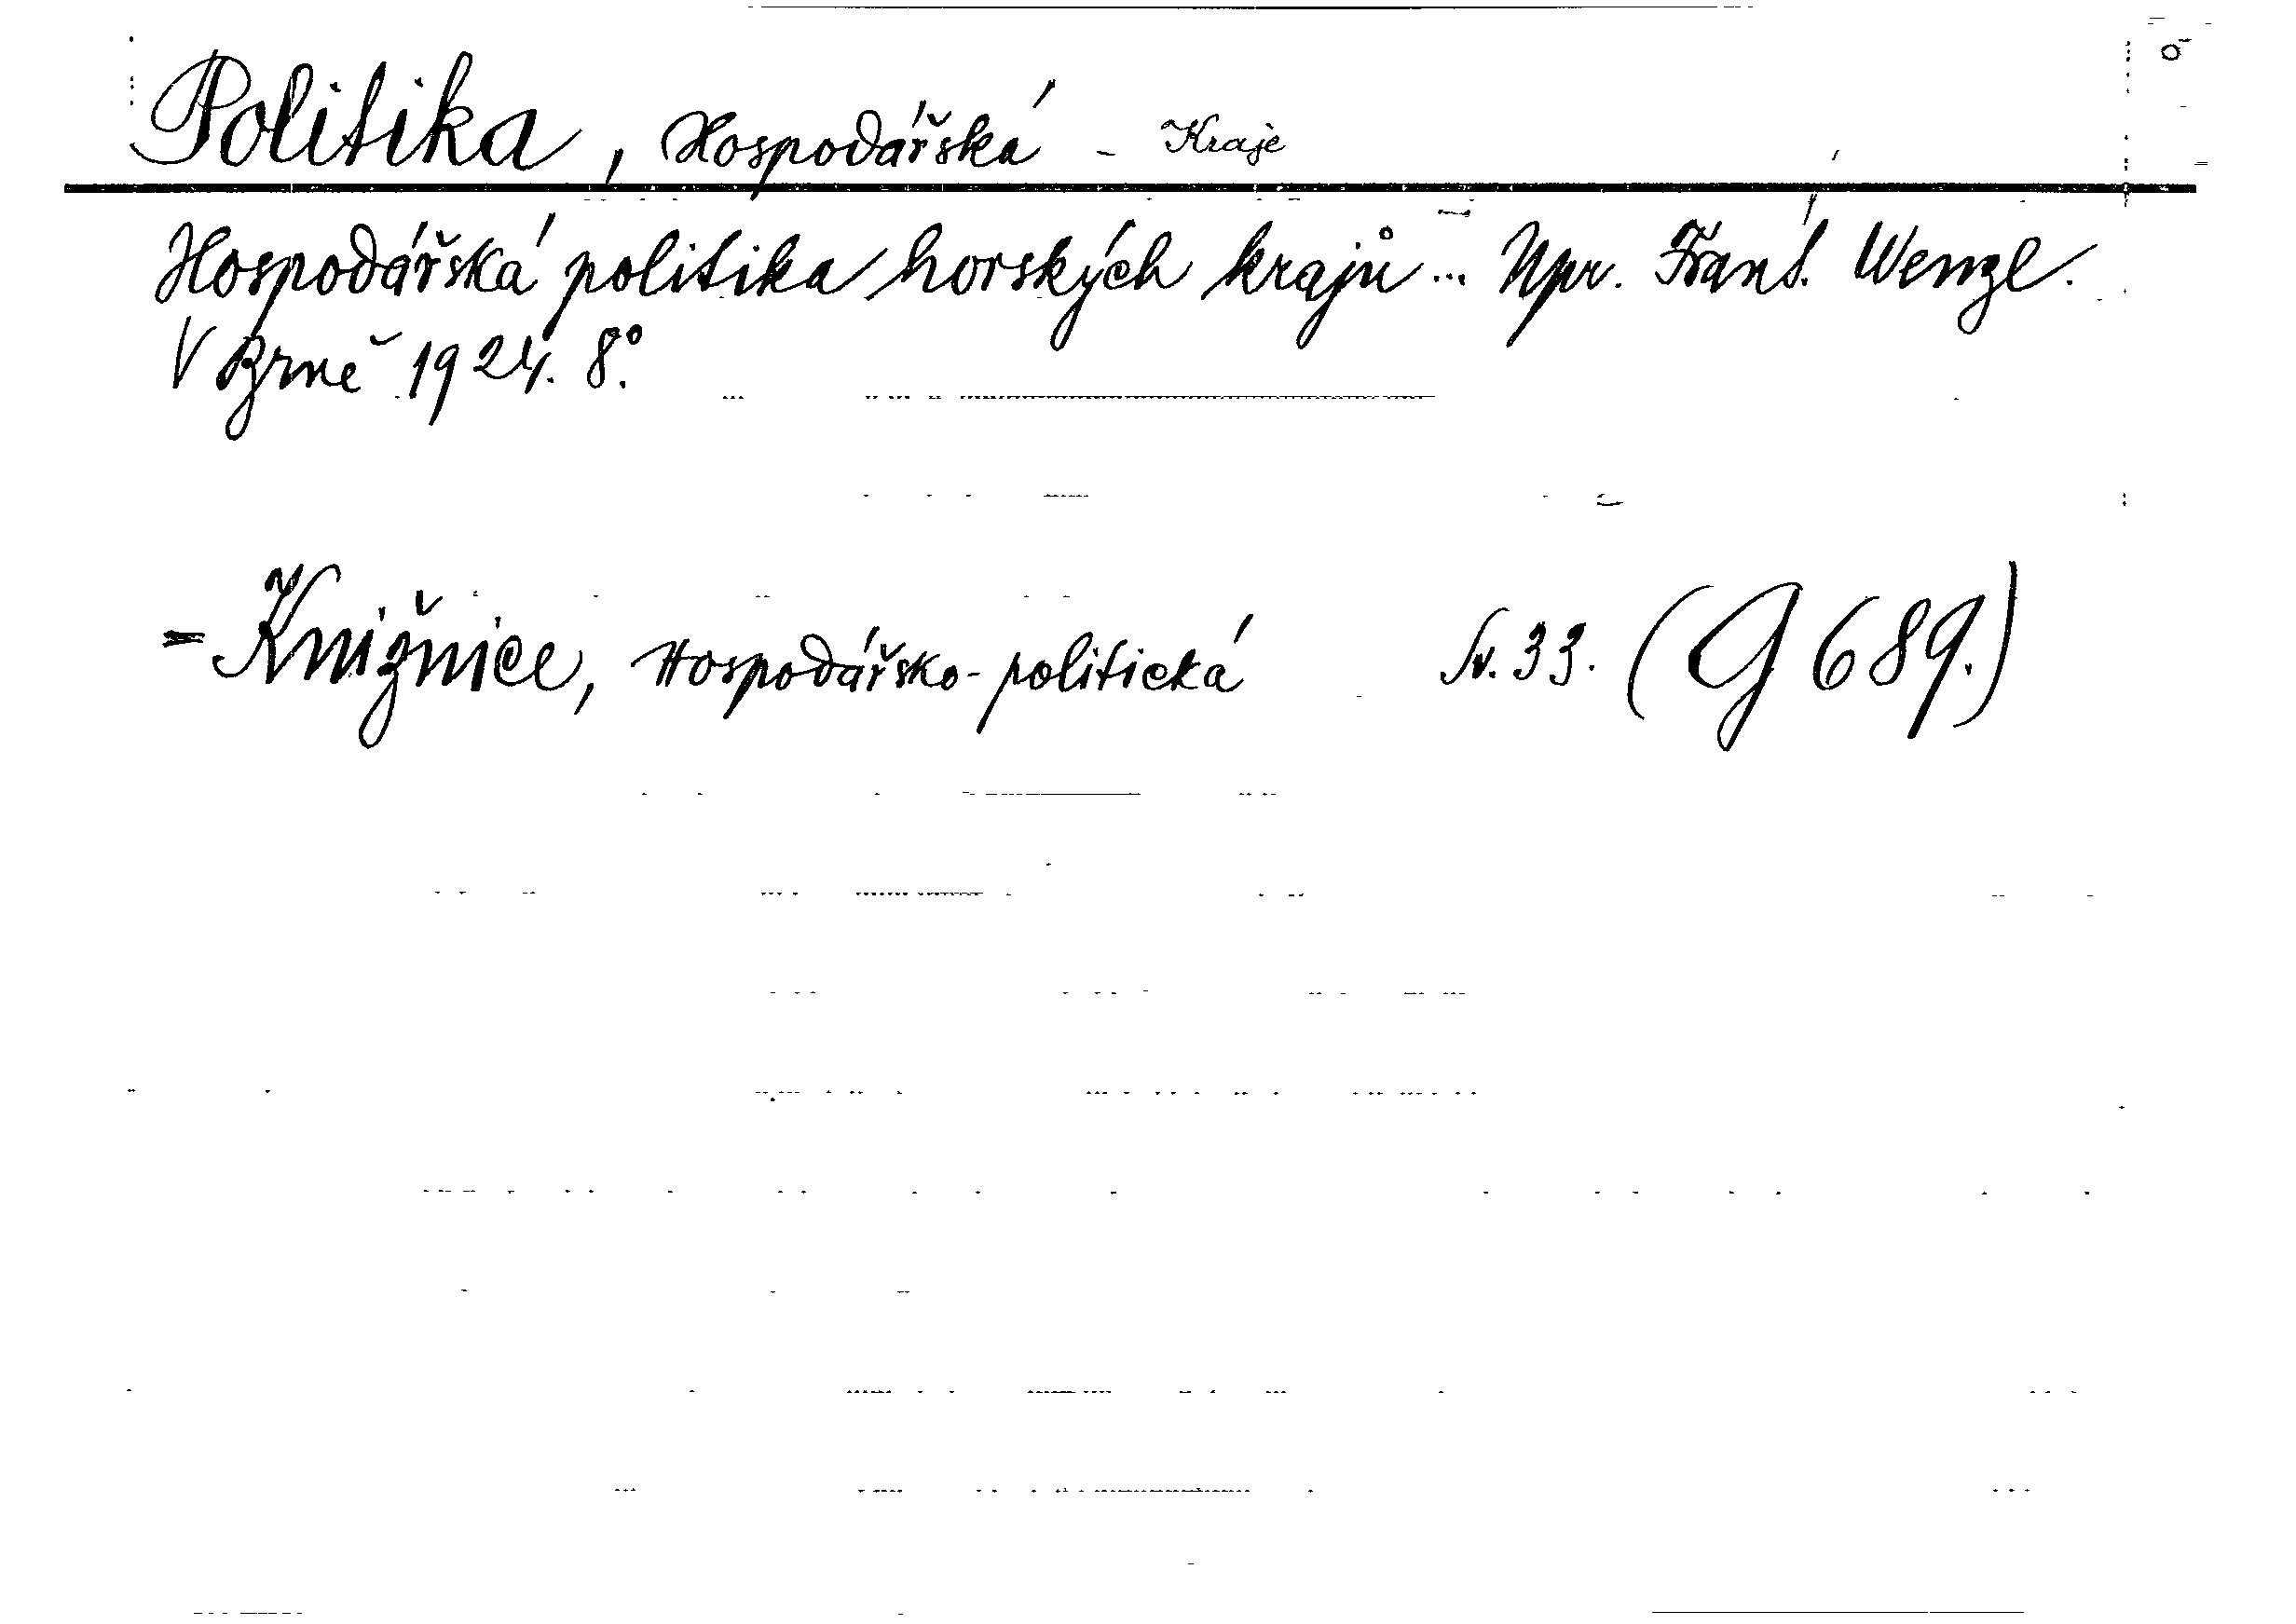 Politika, Hospodářská - Kraje
Hospodářská politika horských krajů... Upr. Frant. Wenzl.
V Brně 1924. 8°.
= Knižnice, Hospodářsko-politická Sv. 33. (G 689.)